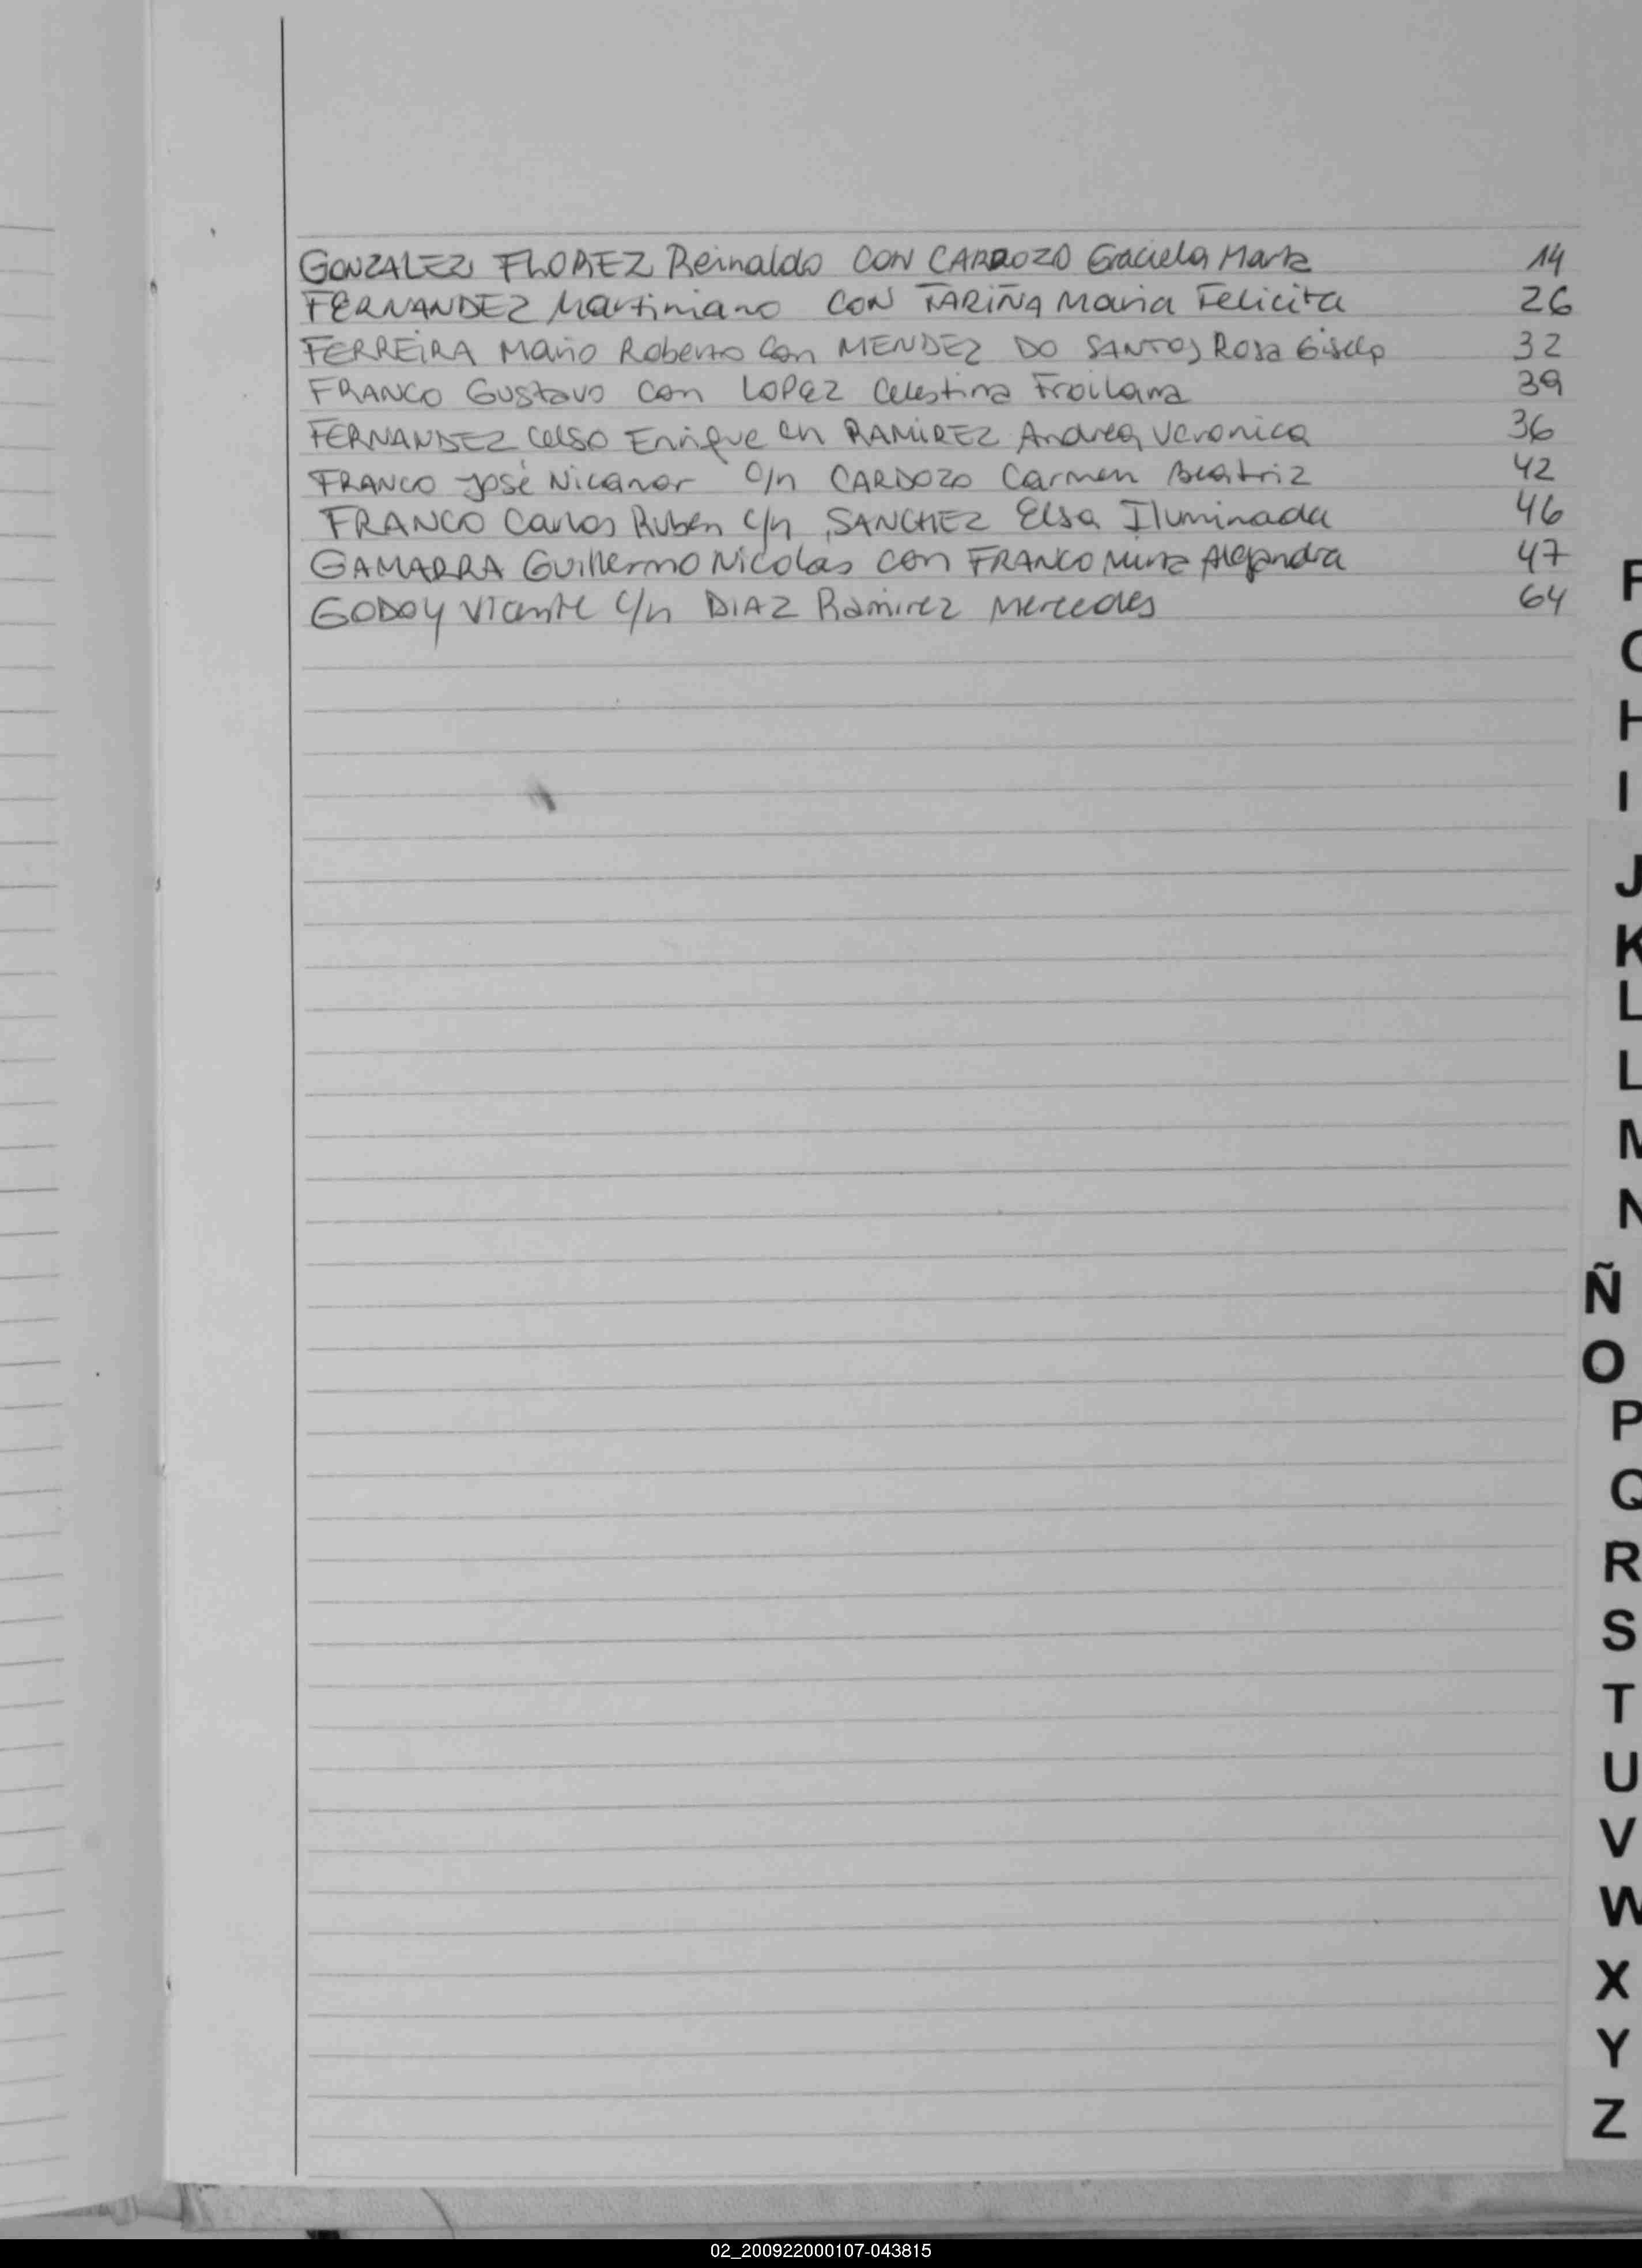 GONZALEZ FLOREZ Reinaldo CON CARDOZO Graciela Marta 14
FERNANDEZ Martiniano CON FARIÑA Maria Felicita 26
FERREIRA Mario Roberto Con MENDEZ DO SANTOS Rosa Gisela 32
FRANCO Gustavo con LOPEZ Celestina Froilana 39
FERNANDEZ Celso Enrique cn RAMIREZ Andrea Veronica 36
FRANCO José Nicanor c/n CARDOZO Carmen Beatriz 42
FRANCO Carlos Ruben c/n SANCHEZ Elsa Iluminada 46
GAMARRA Guillermo Nicolas con FRANCO Alejandra 47
GODOY Vicente c/n DIAZ Ramirez Mercedes 64
F
G
H
I
J
K
L
L
M
N
Ñ
O
P
Q
R
S
T
U
V
W
X
Y
Z
02_200922000107-043815